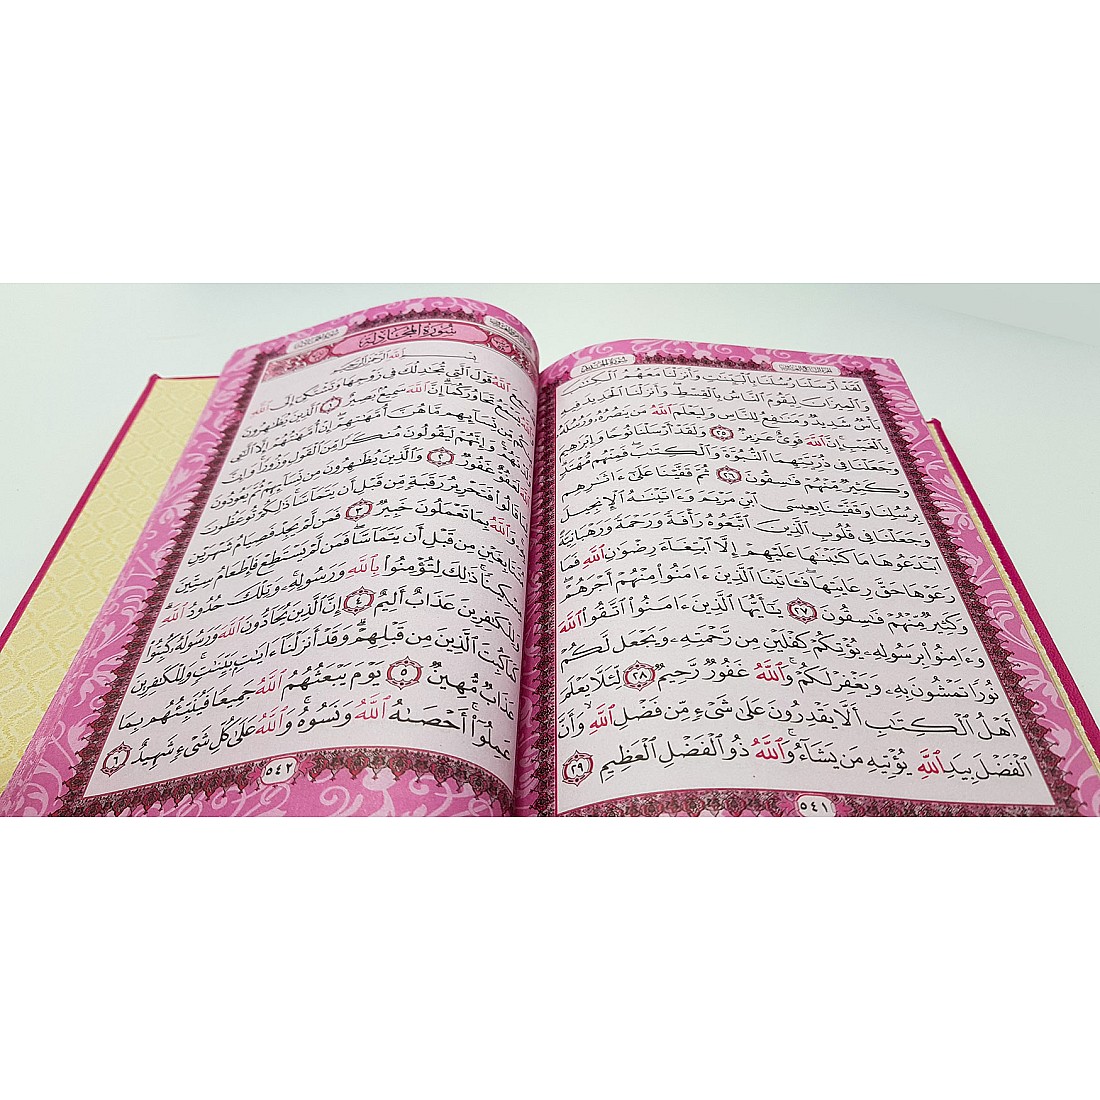 لَقَدْ أَرْسَلْنَا رُسُلَنَا بِٱلْبَيِّنَٰتِ وَأَنزَلْنَا مَعَهُمُ ٱلْكِتَٰبَ
وَٱلْمِيزَانَ لِيَقُومَ ٱلنَّاسُ بِٱلْقِسْطِ ۖ وَأَنزَلْنَا ٱلْحَدِيدَ فِيهِ
بَأْسٌ شَدِيدٌ وَمَنَٰفِعُ لِلنَّاسِ وَلِيَعْلَمَ ٱللَّهُ مَن يَنصُرُهُۥ وَرُسُلَهُۥ
بِٱلْغَيْبِ ۚ إِنَّ ٱللَّهَ قَوِىٌّ عَزِيزٌ ٢٥ وَلَقَدْ أَرْسَلْنَا نُوحًا وَإِبْرَٰهِيمَ
وَجَعَلْنَا فِى ذُرِّيَّتِهِمَا ٱلنُّبُوَّةَ وَٱلْكِتَٰبَ ۖ فَمِنْهُم مُّهْتَدٍ ۖ
وَكَثِيرٌ مِّنْهُمْ فَٰسِقُونَ ٢٦ ثُمَّ قَفَّيْنَا عَلَىٰٓ ءَاثَٰرِهِم
بِرُسُلِنَا وَقَفَّيْنَا بِعِيسَى ٱبْنِ مَرْيَمَ وَءَاتَيْنَٰهُ ٱلْإِنجِيلَ
وَجَعَلْنَا فِى قُلُوبِ ٱلَّذِينَ ٱتَّبَعُوهُ رَأْفَةً وَرَحْمَةً وَرَهْبَانِيَّةً
ٱبْتَدَعُوهَا مَا كَتَبْنَٰهَا عَلَيْهِمْ إِلَّا ٱبْتِغَآءَ رِضْوَٰنِ ٱللَّهِ فَمَا
رَعَوْهَا حَقَّ رِعَايَتِهَا ۖ فَـَٔاتَيْنَا ٱلَّذِينَ ءَامَنُوا۟ مِنْهُمْ أَجْرَهُمْ ۖ
وَكَثِيرٌ مِّنْهُمْ فَٰسِقُونَ ٢٧ يَٰٓأَيُّهَا ٱلَّذِينَ ءَامَنُوا۟ ٱتَّقُوا۟ ٱللَّهَ
وَءَامِنُوا۟ بِرَسُولِهِۦ يُؤْتِكُمْ كِفْلَيْنِ مِن رَّحْمَتِهِۦ وَيَجْعَل لَّكُمْ
نُورًا تَمْشُونَ بِهِۦ وَيَغْفِرْ لَكُمْ ۚ وَٱللَّهُ غَفُورٌ رَّحِيمٌ ٢٨ لِّئَلَّا يَعْلَمَ
أَهْلُ ٱلْكِتَٰبِ أَلَّا يَقْدِرُونَ عَلَىٰ شَىْءٍ مِّن فَضْلِ ٱللَّهِ ۙ وَأَنَّ
ٱلْفَضْلَ بِيَدِ ٱللَّهِ يُؤْتِيهِ مَن يَشَآءُ ۚ وَٱللَّهُ ذُو ٱلْفَضْلِ ٱلْعَظِيمِ ٢٩
٥٤١
سُورَةُ المُجَادلة
بِسْمِ ٱللَّهِ ٱلرَّحْمَٰنِ ٱلرَّحِيمِ
ٱللَّهُ قَوْلَ ٱلَّتِى تُجَٰدِلُكَ فِى زَوْجِهَا وَتَشْتَكِىٓ إِلَى ٱللَّهِ
يَسْمَعُ تَحَاوُرَكُمَآ ۚ إِنَّ ٱللَّهَ سَمِيعٌۢ بَصِيرٌ ١ ٱلَّذِينَ يُظَٰهِرُونَ
مِنكُم مِّن نِّسَآئِهِم مَّا هُنَّ أُمَّهَٰتِهِمْ ۖ إِنْ أُمَّهَٰتُهُمْ إِلَّا ٱلَّٰٓـِٔى
وَلَدْنَهُمْ ۚ وَإِنَّهُمْ لَيَقُولُونَ مُنكَرًا مِّنَ ٱلْقَوْلِ وَزُورًا ۚ وَإِنَّ
ٱللَّهَ لَعَفُوٌّ غَفُورٌ ٢ وَٱلَّذِينَ يُظَٰهِرُونَ مِن نِّسَآئِهِمْ ثُمَّ يَعُودُونَ
لِمَا قَالُوا۟ فَتَحْرِيرُ رَقَبَةٍ مِّن قَبْلِ أَن يَتَمَآسَّا ۚ ذَٰلِكُمْ تُوعَظُونَ
بِهِۦ ۚ وَٱللَّهُ بِمَا تَعْمَلُونَ خَبِيرٌ ٣ فَمَن لَّمْ يَجِدْ فَصِيَامُ شَهْرَيْنِ
مُتَتَابِعَيْنِ مِن قَبْلِ أَن يَتَمَآسَّا ۖ فَمَن لَّمْ يَسْتَطِعْ فَإِطْعَامُ سِتِّينَ
مِسْكِينًا ۚ ذَٰلِكَ لِتُؤْمِنُوا۟ بِٱللَّهِ وَرَسُولِهِۦ ۚ وَتِلْكَ حُدُودُ ٱللَّهِ ۗ
وَلِلْكَٰفِرِينَ عَذَابٌ أَلِيمٌ ٤ إِنَّ ٱلَّذِينَ يُحَآدُّونَ ٱللَّهَ وَرَسُولَهُۥ كُبِتُوا۟
كَمَا كُبِتَ ٱلَّذِينَ مِن قَبْلِهِمْ ۚ وَقَدْ أَنزَلْنَآ ءَايَٰتٍۭ بَيِّنَٰتٍ ۚ وَلِلْكَٰفِرِينَ
عَذَابٌ مُّهِينٌ ٥ يَوْمَ يَبْعَثُهُمُ ٱللَّهُ جَمِيعًا فَيُنَبِّئُهُم بِمَا
عَمِلُوٓا۟ ۚ أَحْصَىٰهُ ٱللَّهُ وَنَسُوهُ ۚ وَٱللَّهُ عَلَىٰ كُلِّ شَىْءٍ شَهِيدٌ ٦
٥٤٢